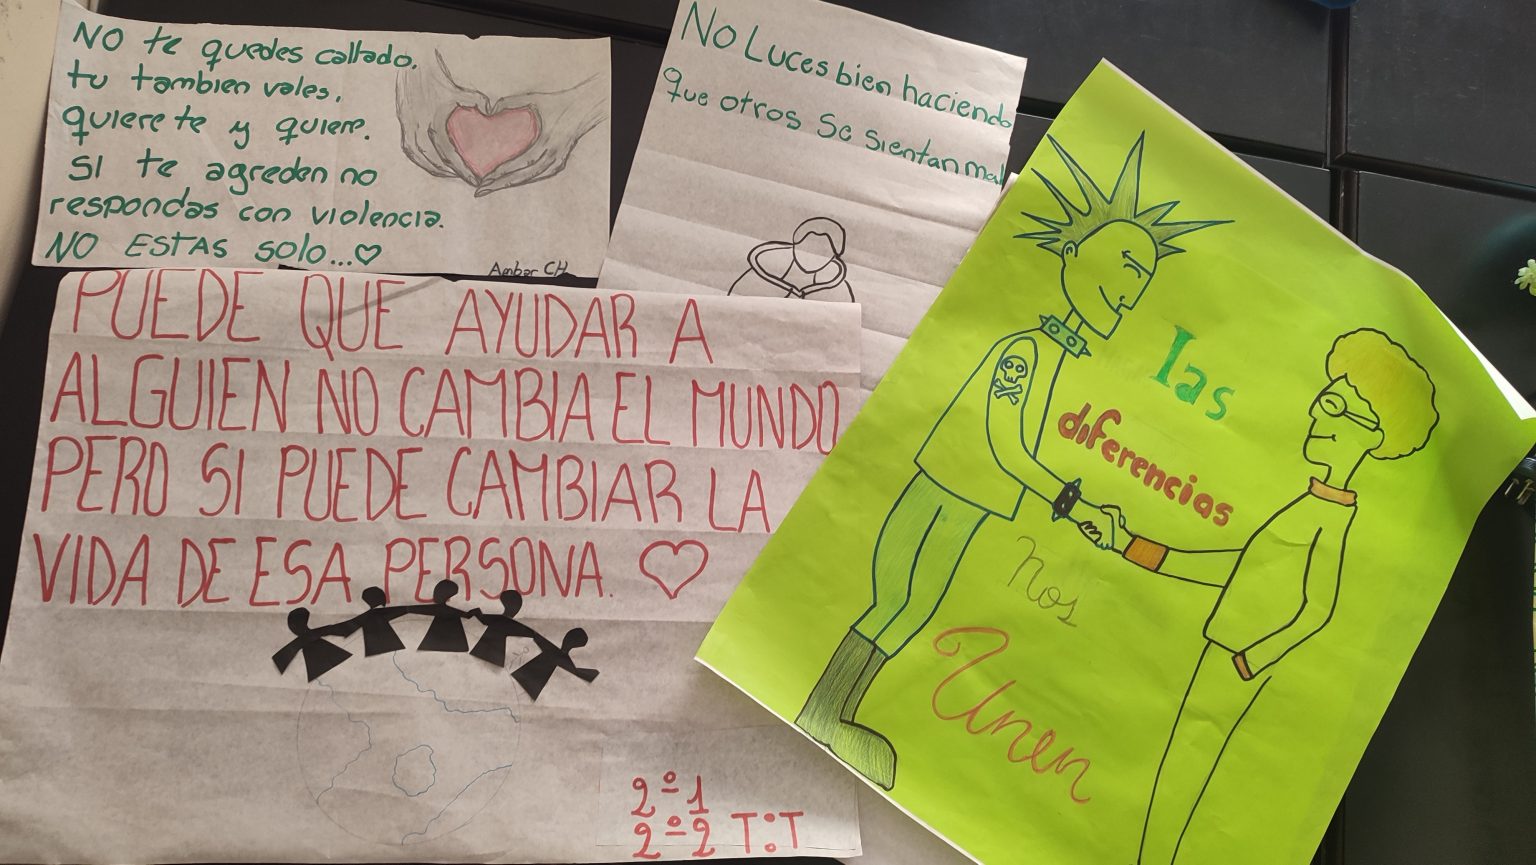 NO te quedes callado,
tu tambien vales,
quiere te y quiere.
SI te agreden no
respondas con violencia.
NO ESTAS SOLO...♡
Ambar CH
No Luces bien haciendo
que otros se sientan mal
PUEDE QUE AYUDAR A
ALGUIEN NO CAMBIA EL MUNDO
PERO SI PUEDE CAMBIAR LA
VIDA DE ESA PERSONA. ♡
2º1
2º2 T:T
las
diferencias
nos
Unen